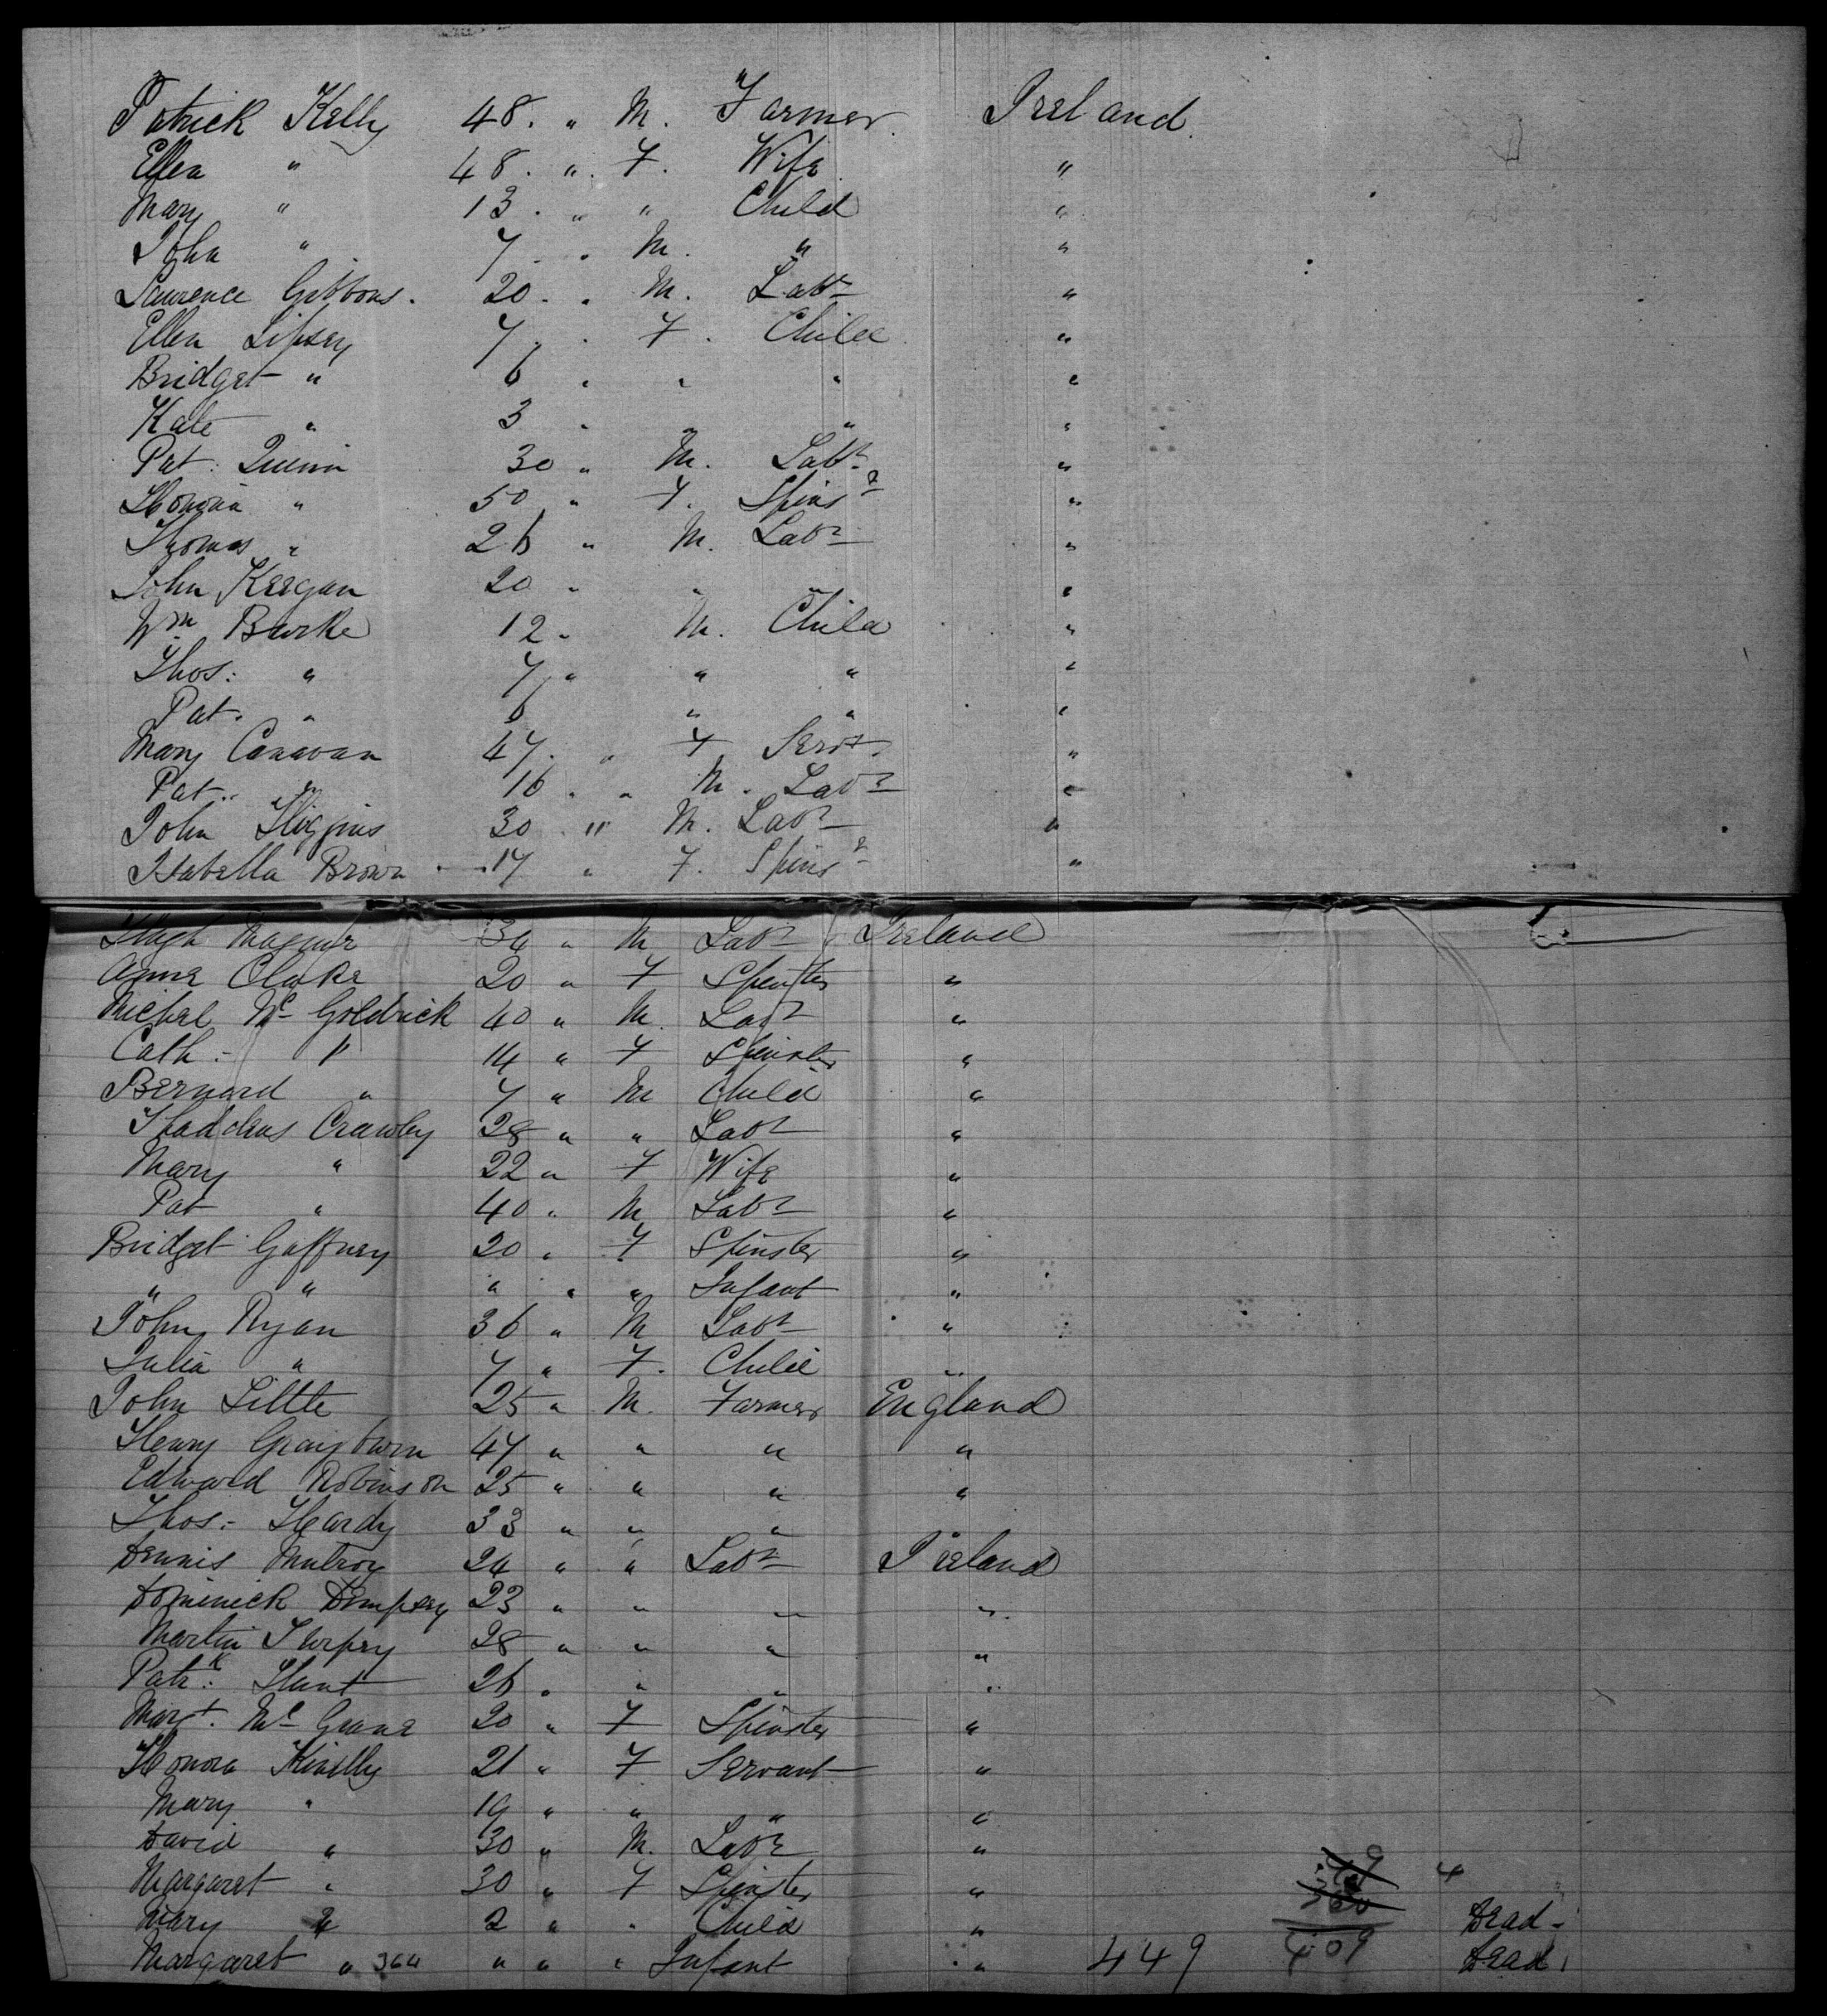 Patrick Kelly 48 . " M. Farmer. Ireland.
Ellen " 48 . " . F. Wife "
Mary " 13 . " " Child "
John " 7 . " M. " "
Laurence Gibbons. 20 . " M. Labr "
Ellen Lipsey 7 . . F. Child "
Bridget " 6 " " " "
Kate " 3 " " " "
Pat: Quinn 30 " M. Labr "
Honora " 50 " F. Spinsr "
Thomas " 26 " M. Labr "
John Keegan 20 " " " "
Wm Burke 12 " M. Child "
Thos: " 7 " " " "
Pat. " 6 " " "
Mary Canavan 47 . " F Servt. "
Pat.. " 16 . " M. Labr "
John Higgins 30 . " M. Labr "
Isabella Brown 17 " F. Spinsr "
Hugh 34 " M Labr Ireland
Anne Clarke 20 " F Spinster "
Michel Mc Goldrick 40 " M. Labr "
Cath:- " 14 " F Spinster "
Bernard " 7 " M Child "
Thaddeus Crawley 28 " " Labr "
Mary " 22 " F Wife "
Pat " 40 " M Labr "
Bridget Gaffney 20 " F Spinster "
" " " " " Infant "
John Ryan 36 " M Labr "
Julia " 7 " F. Child "
John Little 25 " M. Farmer England
Henry Grayburn 47 " " " "
Edward Robinson 25 " " " "
Thos:- Hardy 33 " " "
Dennis Mulroy 24 " " Labr Ireland
Dominick Dempsey 23 " " " "
Martin 28 " " " "
Patk: Hunt 26 " " " "
Margt. Mc Grane 20 " F Spinster "
Honora 21 " F Servant "
Mary " 19 " " " "
David " 30 " M. Labr "
Margaret " 30 " F Spinster " 4
Mary " 2 " " Child " Dead -
Margaret " 364 " " " Infant " 449 409 Dead.